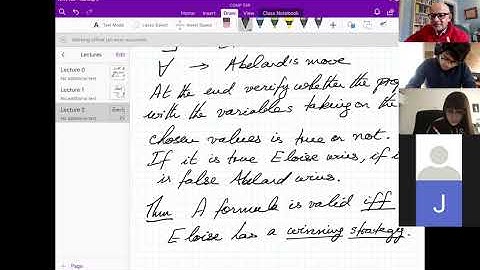 COMP 559
File
Home
Insert
Draw
View
Class Notebook
Text Mode
Lasso Select
Insert Space
Lectures
Lecture 0
No additional text
Lecture 1
No additional text
Lecture 2
No additional text
+ Page
∀ → Abelard's move
At the end verify whether the prop
with the variables taking on the
chosen values is true or not.
If it is true Eloise wins, if i
is false Abelard wins.
Thm A formula is valid iff
Eloise has a winning strategy.
J